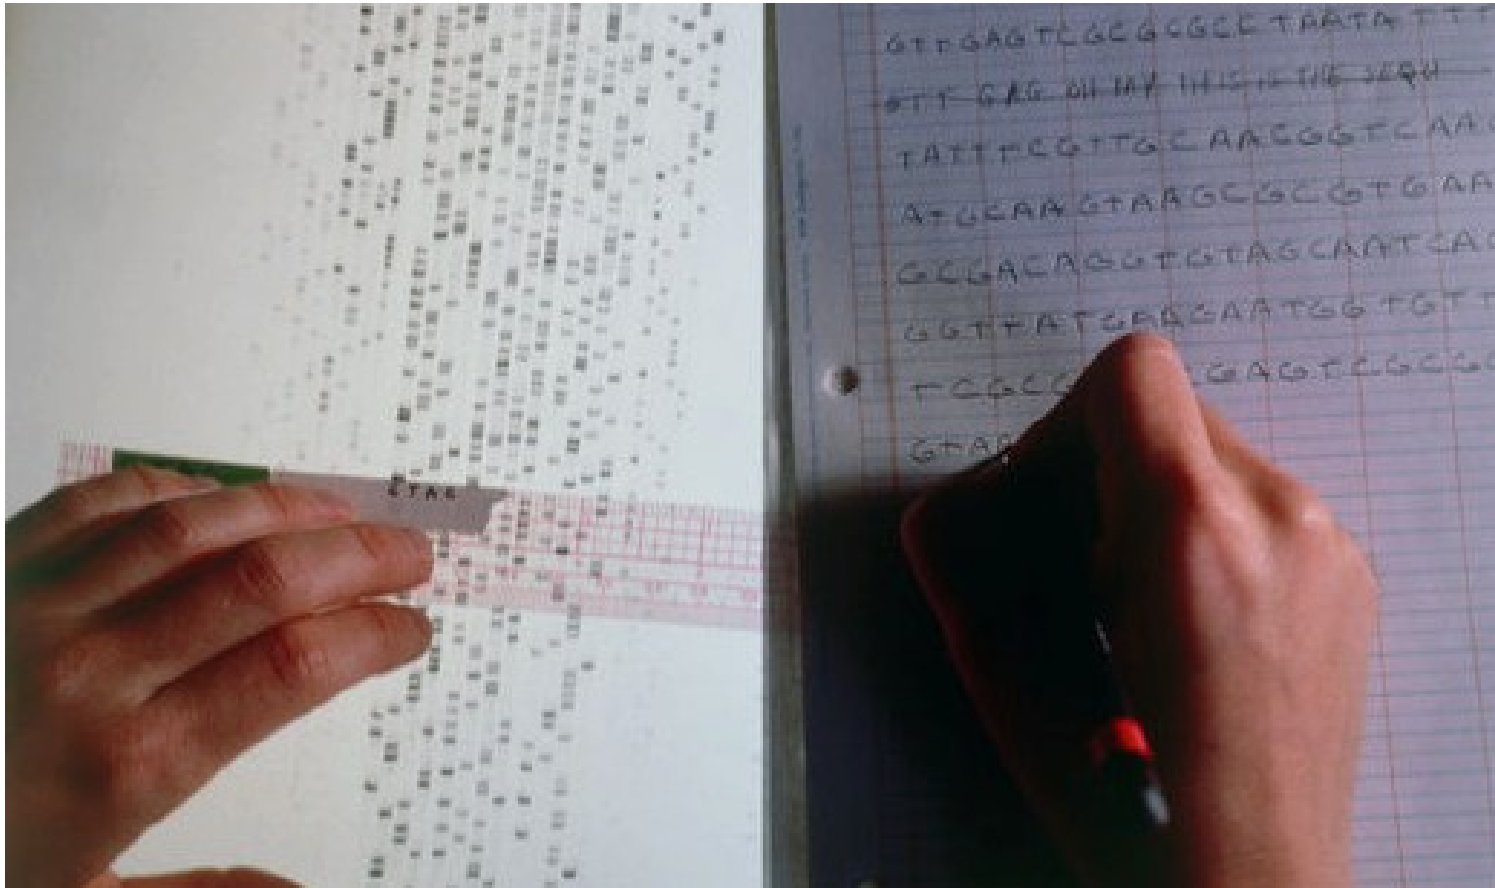 CTAG
GTTGAGTCGCGCGCC TAATA TTT
GTT GAG OH MY THIS IS THE SEQU
TATTTCGTTGC AACGGTCAA
ATGCAA GTAAGCGCGTGAA
GCGACAGGTGTAGCAATCAC
GGTTATGAAGAATGGTGTT
TCGCC CGAGTCGCGC
GTAA